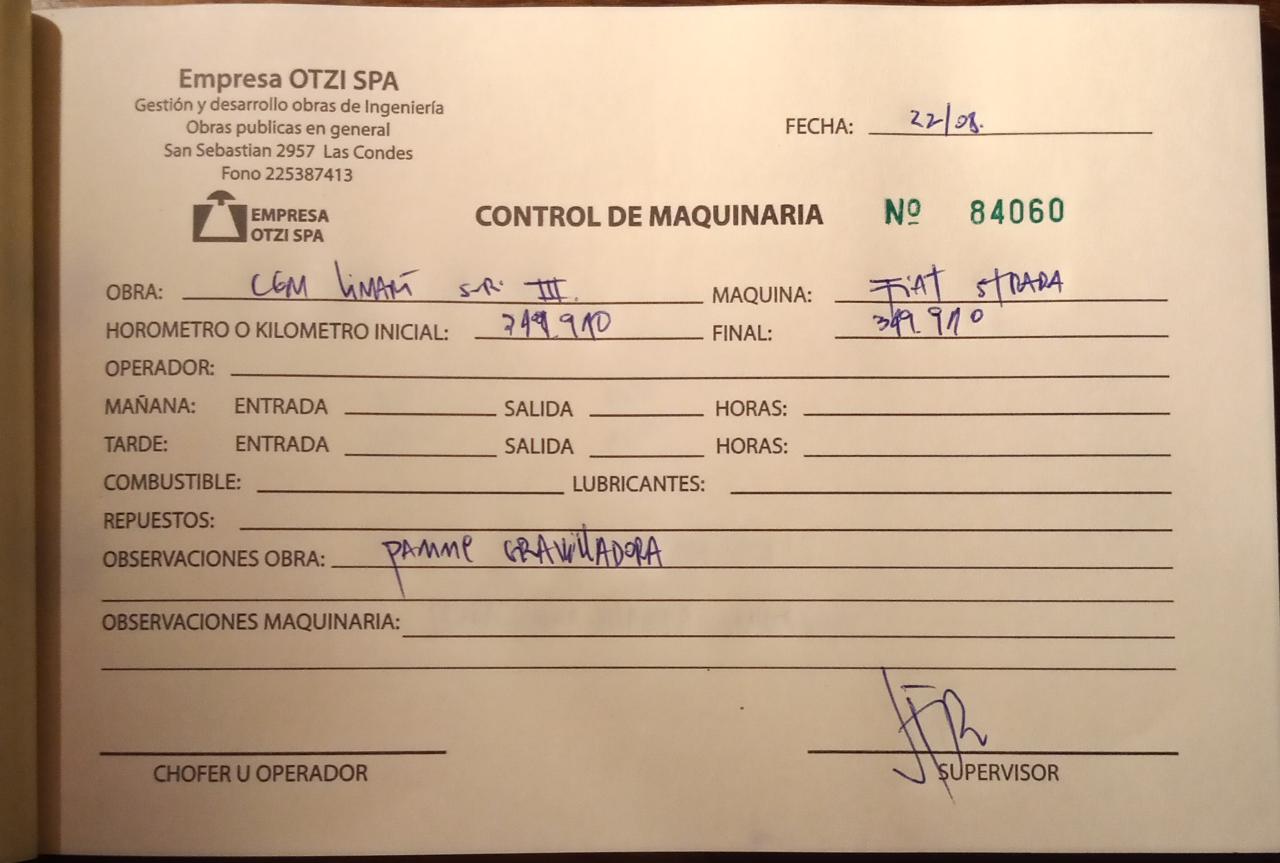 Empresa OTZI SPA
Gestión y desarrollo obras de Ingeniería
Obras publicas en general
San Sebastian 2957 Las Condes
Fono 225387413
FECHA: 22/08.
EMPRESA
OTZI SPA
CONTROL DE MAQUINARIA Nº 84060
OBRA: CGM LiMARÍ S.R. III. MAQUINA: FiAT STRADA
HOROMETRO O KILOMETRO INICIAL: 349.910 FINAL: 349.910
OPERADOR:
MAÑANA: ENTRADA SALIDA HORAS:
TARDE: ENTRADA SALIDA HORAS:
COMBUSTIBLE: LUBRICANTES:
REPUESTOS:
OBSERVACIONES OBRA: PANNE GRAVillADORA
OBSERVACIONES MAQUINARIA:
CHOFER U OPERADOR SUPERVISOR